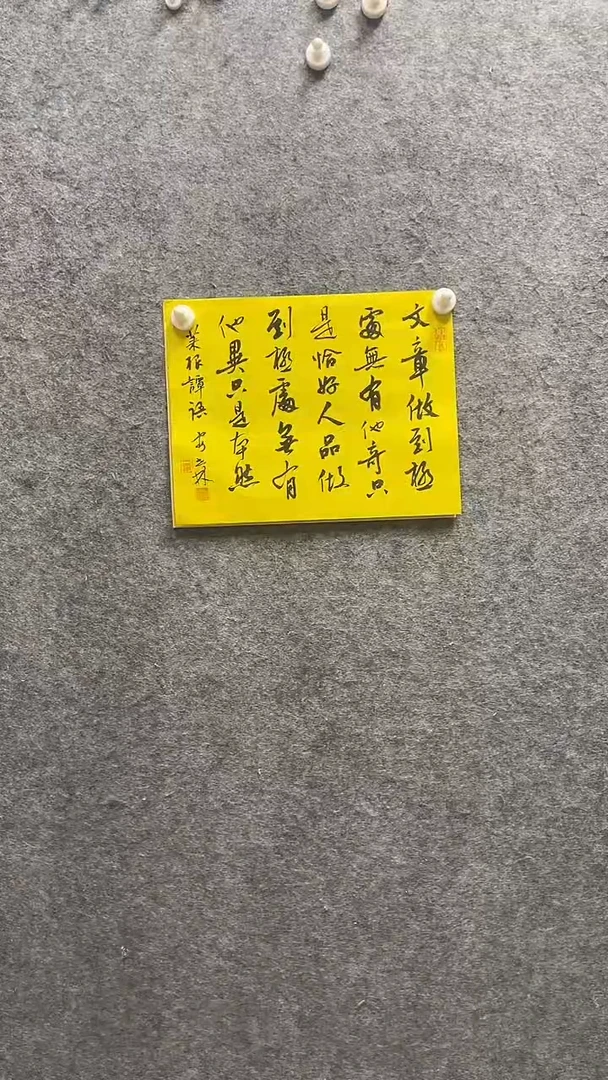 文章做到極
處無有他奇只
是恰好人品做
到極處無有
他異只是本然
菜根譚語